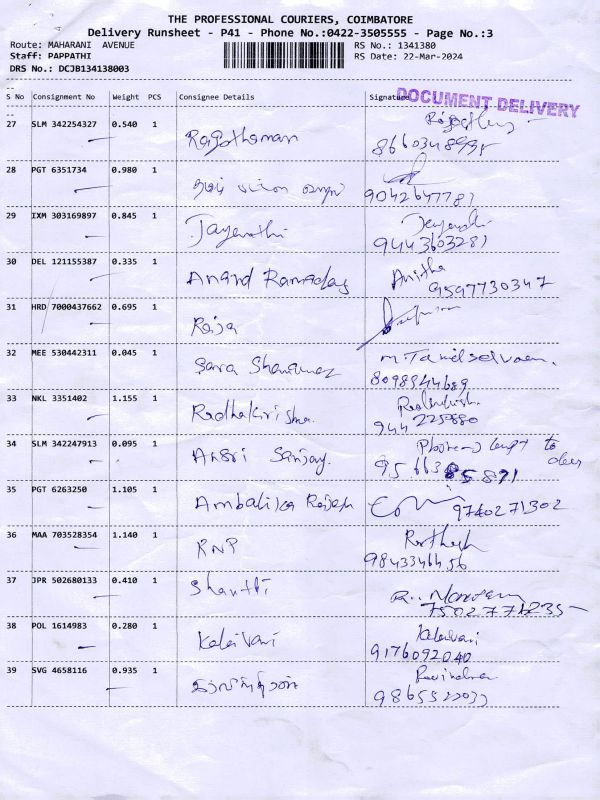 THE PROFESSIONAL COURIERS, COIMBATORE
Delivery Runsheet - P41 - Phone No.:0422-3505555 - Page No.:3
Route: MAHARANI AVENUE
RS No.: 1341380
Staff: PAPPATHI
RS Date: 22-Mar-2024
DRS No.: DCJB134138003
S No Consignment No Weight PCS Consignee Details Signature
DOCUMENT DELIVERY
27 SLM 342254327 0.540 1
Ragothaman
28 PGT 6351734 0.980 1
9042647781
29 IXM 303169897 0.845 1
Jayanthi
9443603281
30 DEL 121155387 0.335 1
Anand Ramadas Anitha
9597730347
31 HRD 7000437662 0.695 1
Raja
32 MEE 530442311 0.045 1
Sara M Tamilselvan.
8098944689
33 NKL 3351402 1.155 1
Radhakrishna
34 SLM 342247913 0.095 1
Ansri Sanjay.
35 PGT 6263250 1.105 1
Ambalika Rajesh 9740271302
36 MAA 703528354 1.140 1
KNP
9843346456
37 JPR 502680133 0.410 1
Shanthi
38 POL 1614983 0.280 1
Kalaivani Kalaivani
9176092040
39 SVG 4658116 0.935 1
Ravindran